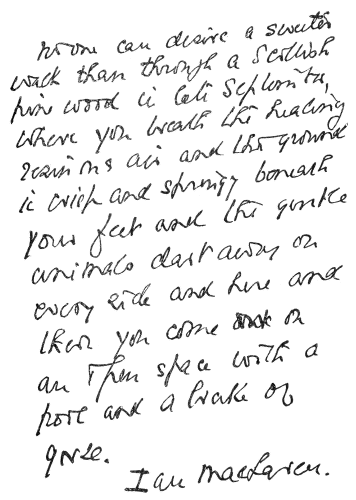 no one can desire a sweeter
walk than through a Scottish
pine wood in late September,
where you breath the healing
resinous air and the ground
is crisp and springy beneath
your feet and the gentle
animals dart away on
every side and here and
there you come on
an open space with a
pool and a brake of
gorse.
Ian Maclaren.